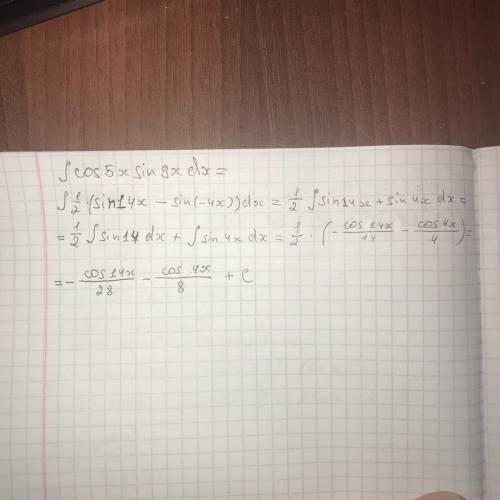 ∫ cos 5x sin 9x dx =
∫ 1/2 · (sin 14x − sin(−4x)) dx = 1/2 ∫ sin 14x + sin 4x dx =
= 1/2 ∫ sin 14 dx + ∫ sin 4x dx = 1/2 · (− cos 14x/14 − cos 4x/4) =
= − cos 14x/28 − cos 4x/8 + C